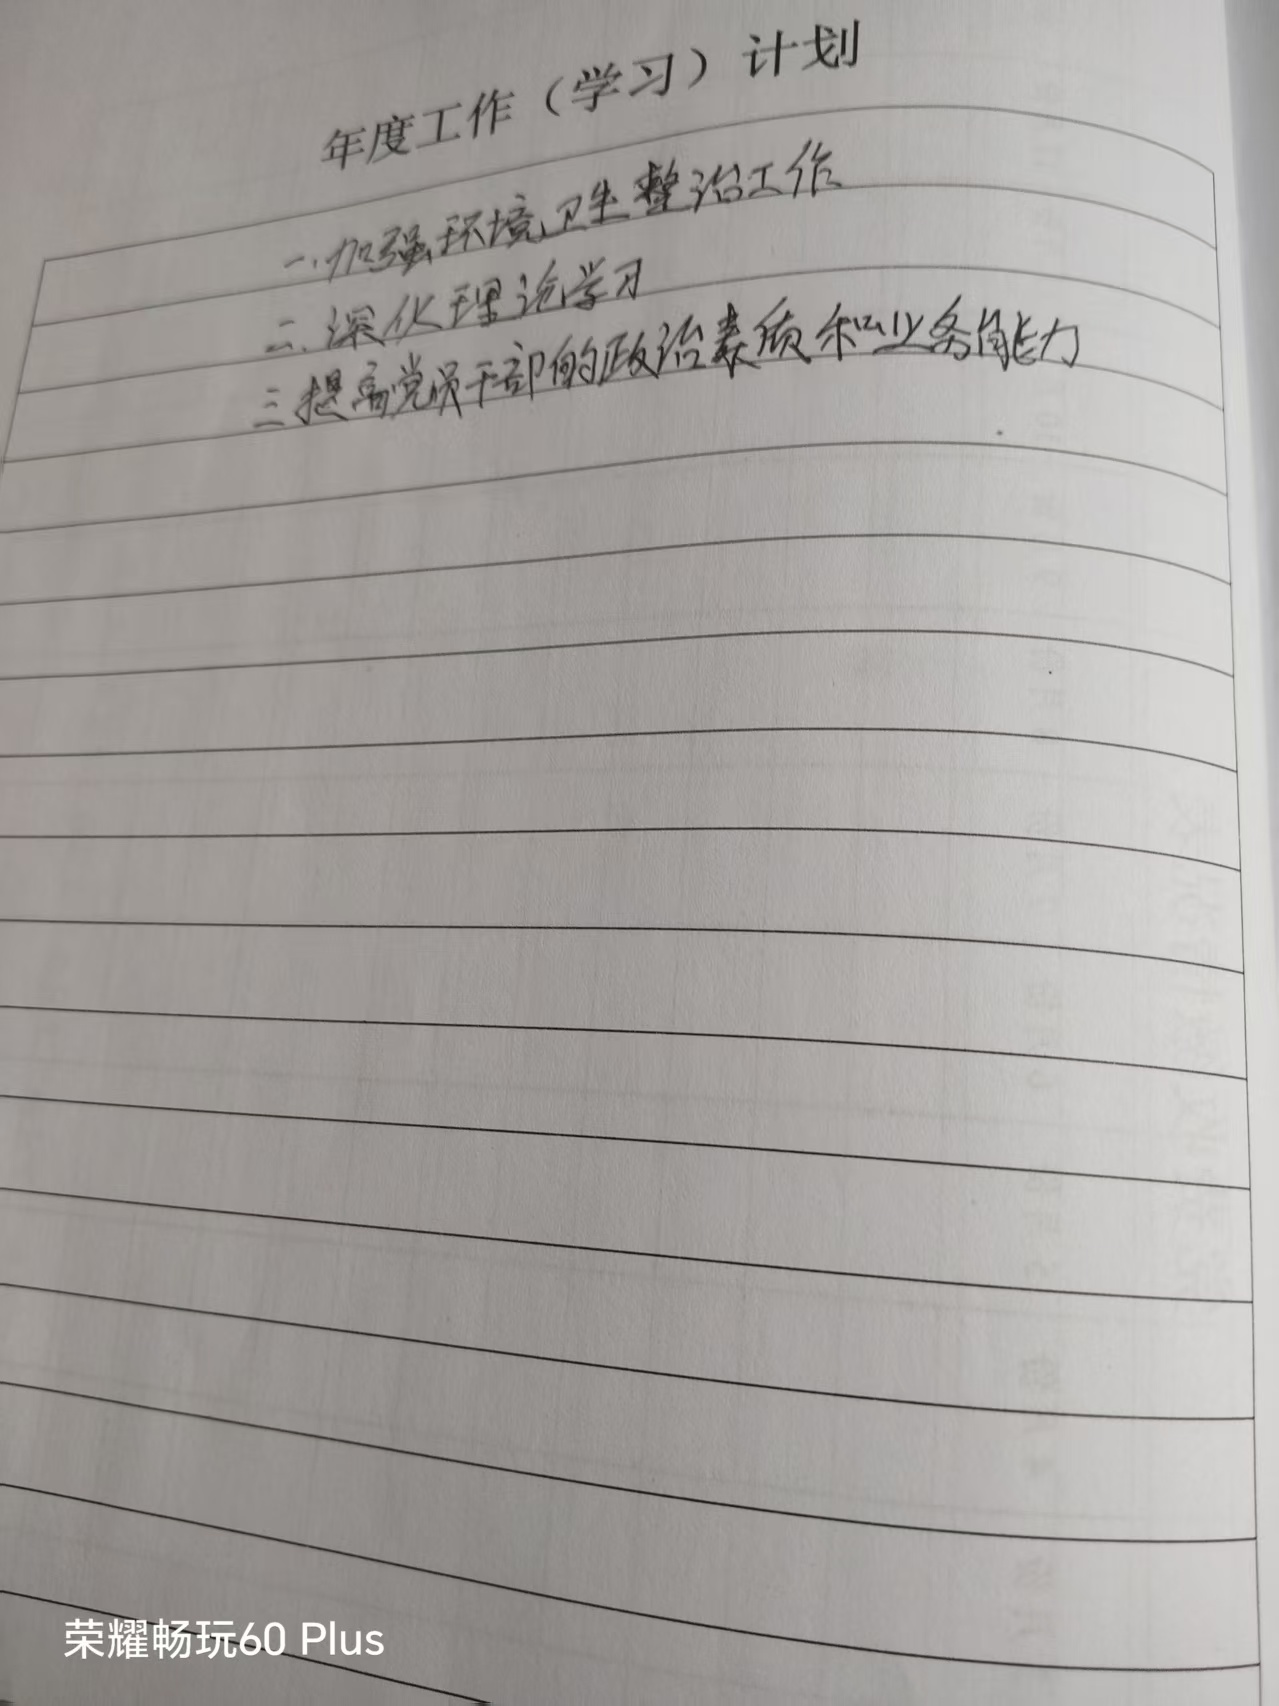 年度工作（学习）计划
一、加强环境卫生整治工作
二、深化理论学习
三提高党员干部的政治素质和业务能力
荣耀畅玩60 Plus